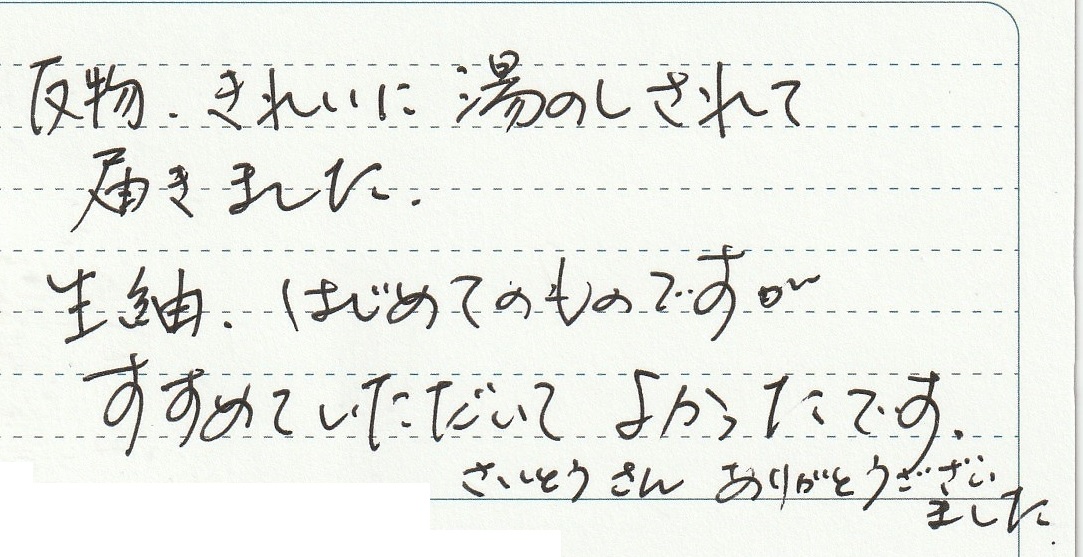 反物、きれいに 湯のしされて
届きました.
生紬、はじめてのものですが
すすめていただいて よかったです.
さいとうさん ありがとうござい
ました.